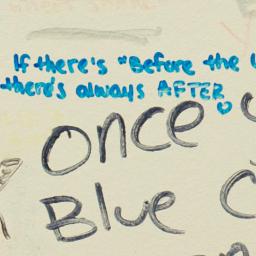 If there's "Before the
there's always AFTER
once
Blue